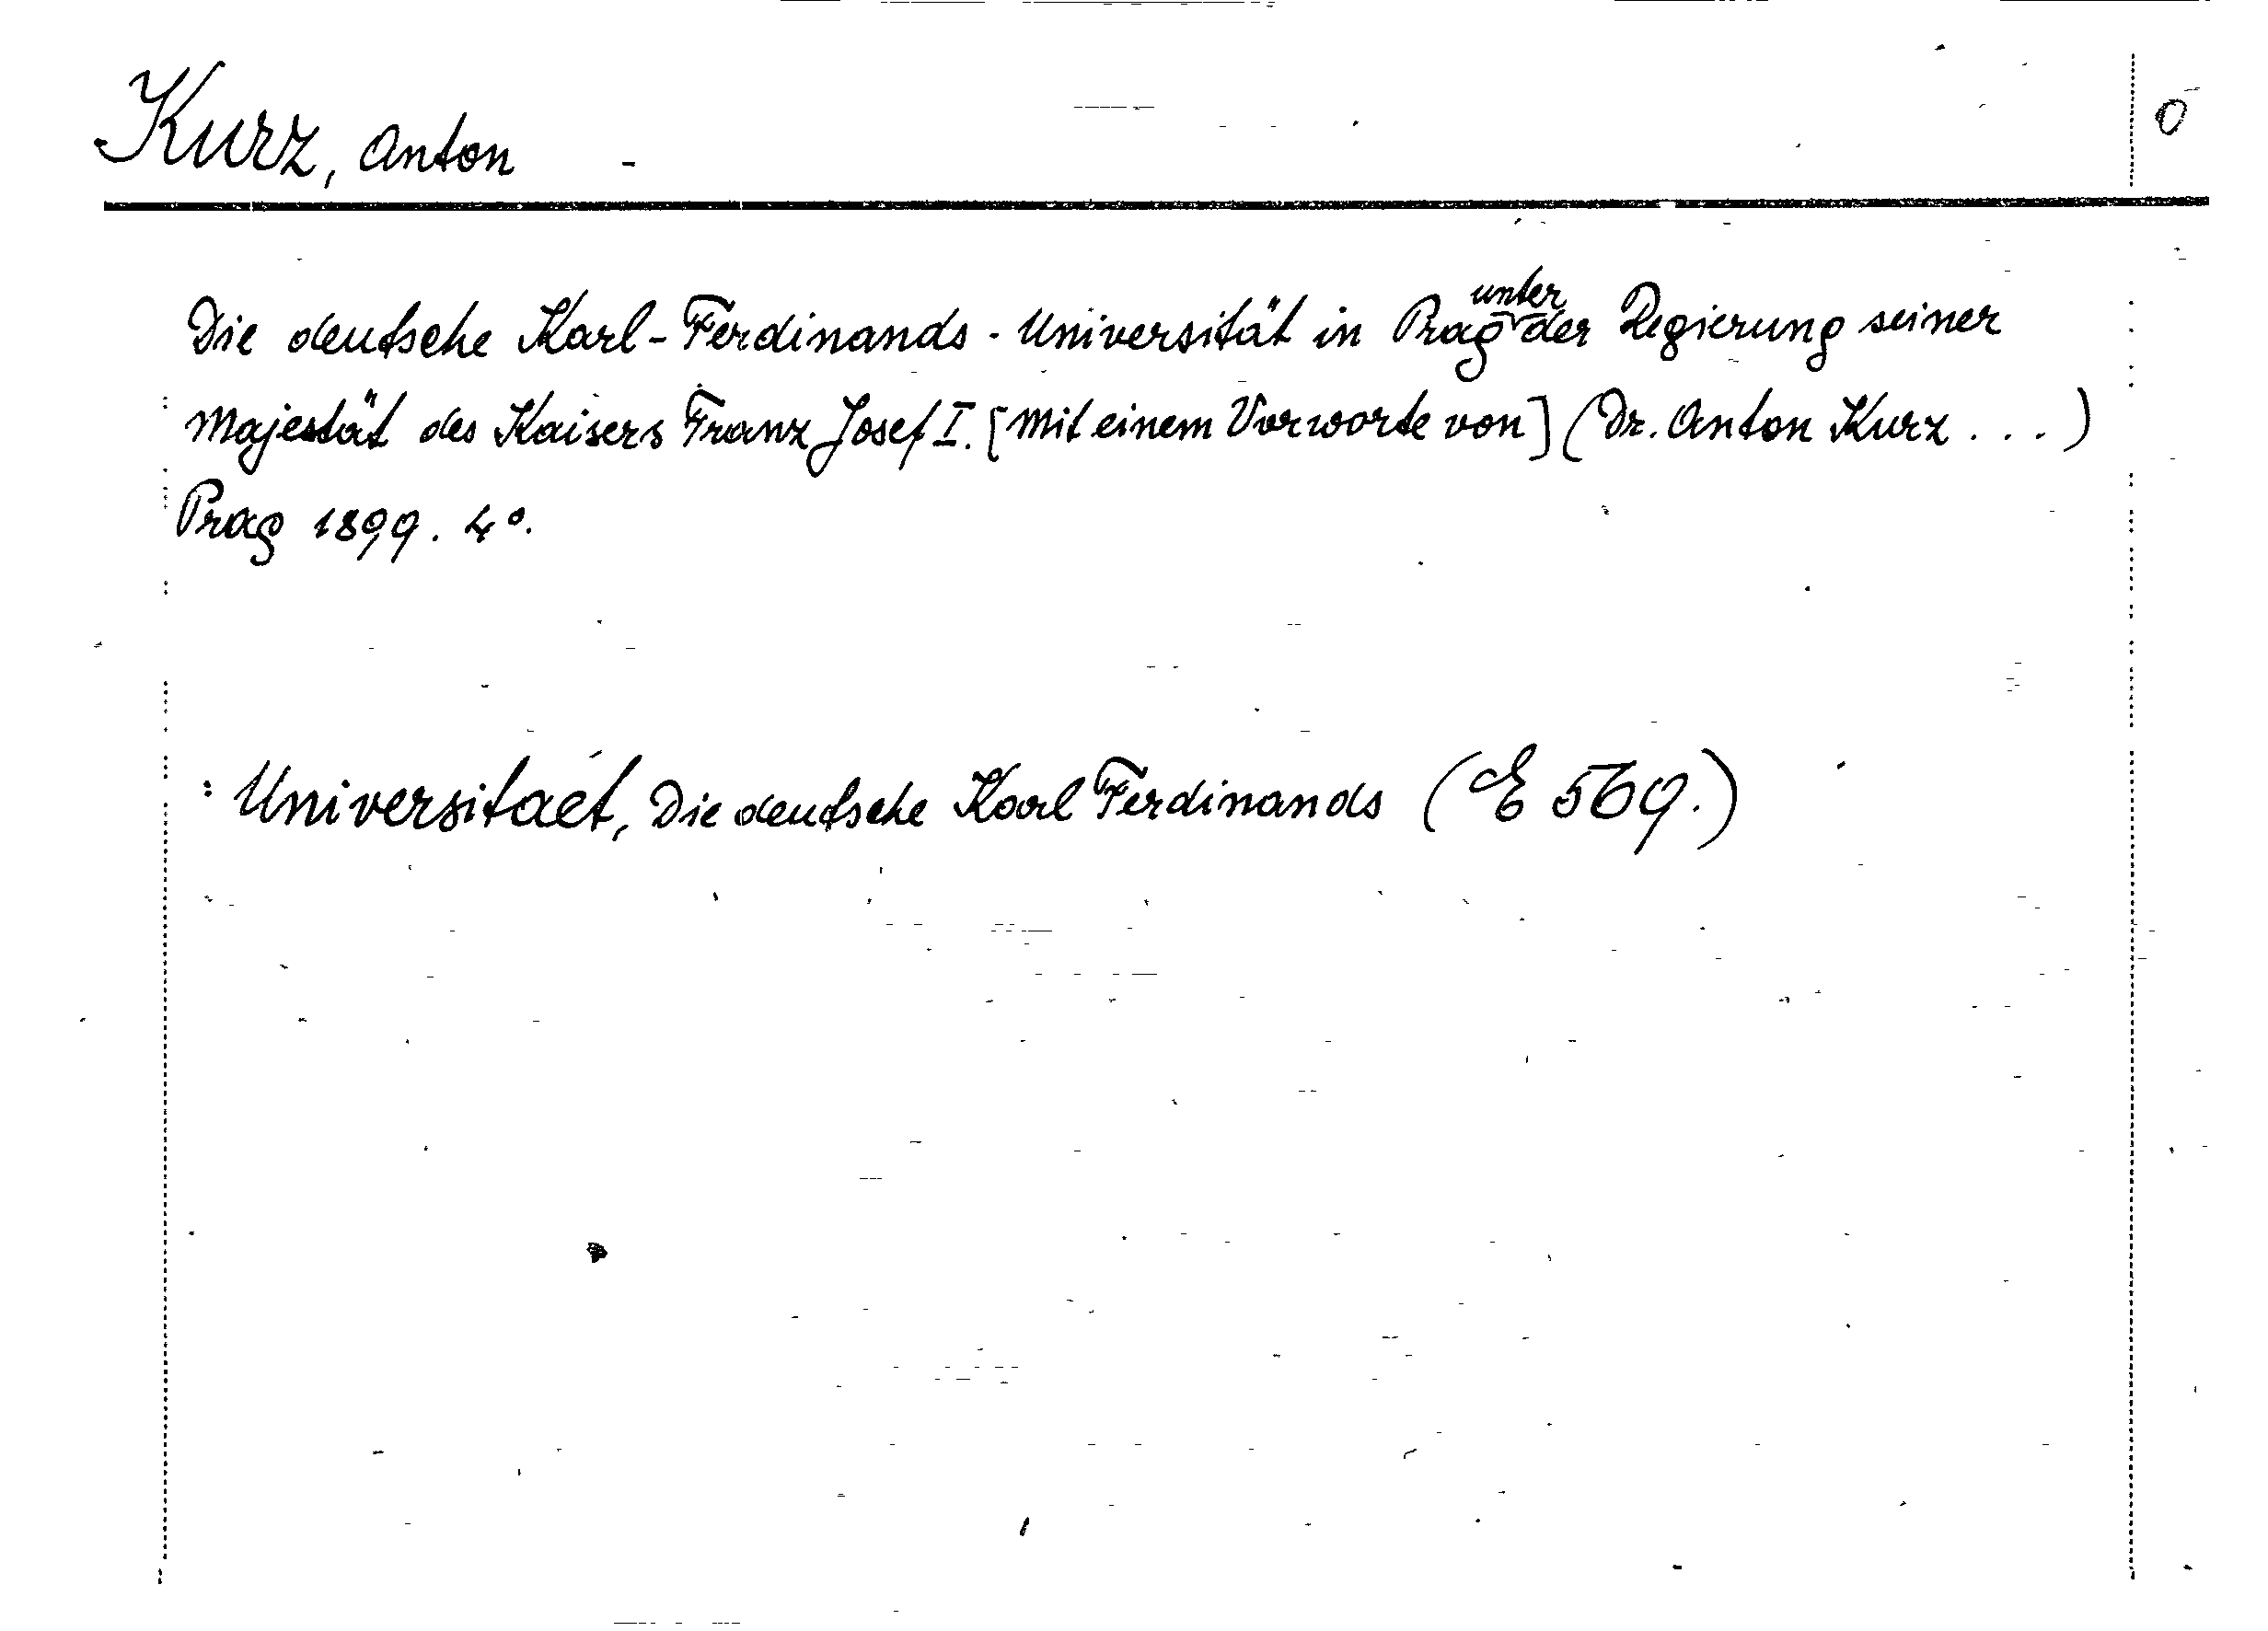 Kurz, Anton
0
Die deutsche Karl-Ferdinands-Universität in Prag unter der Regierung seiner
Majestät des Kaisers Franz Josef I. [Mit einem Vorworte von] (Dr. Anton Kurz . . . )
Prag 1899. 4°.
: Universitaet, Die deutsche Karl Ferdinands (E 569.)